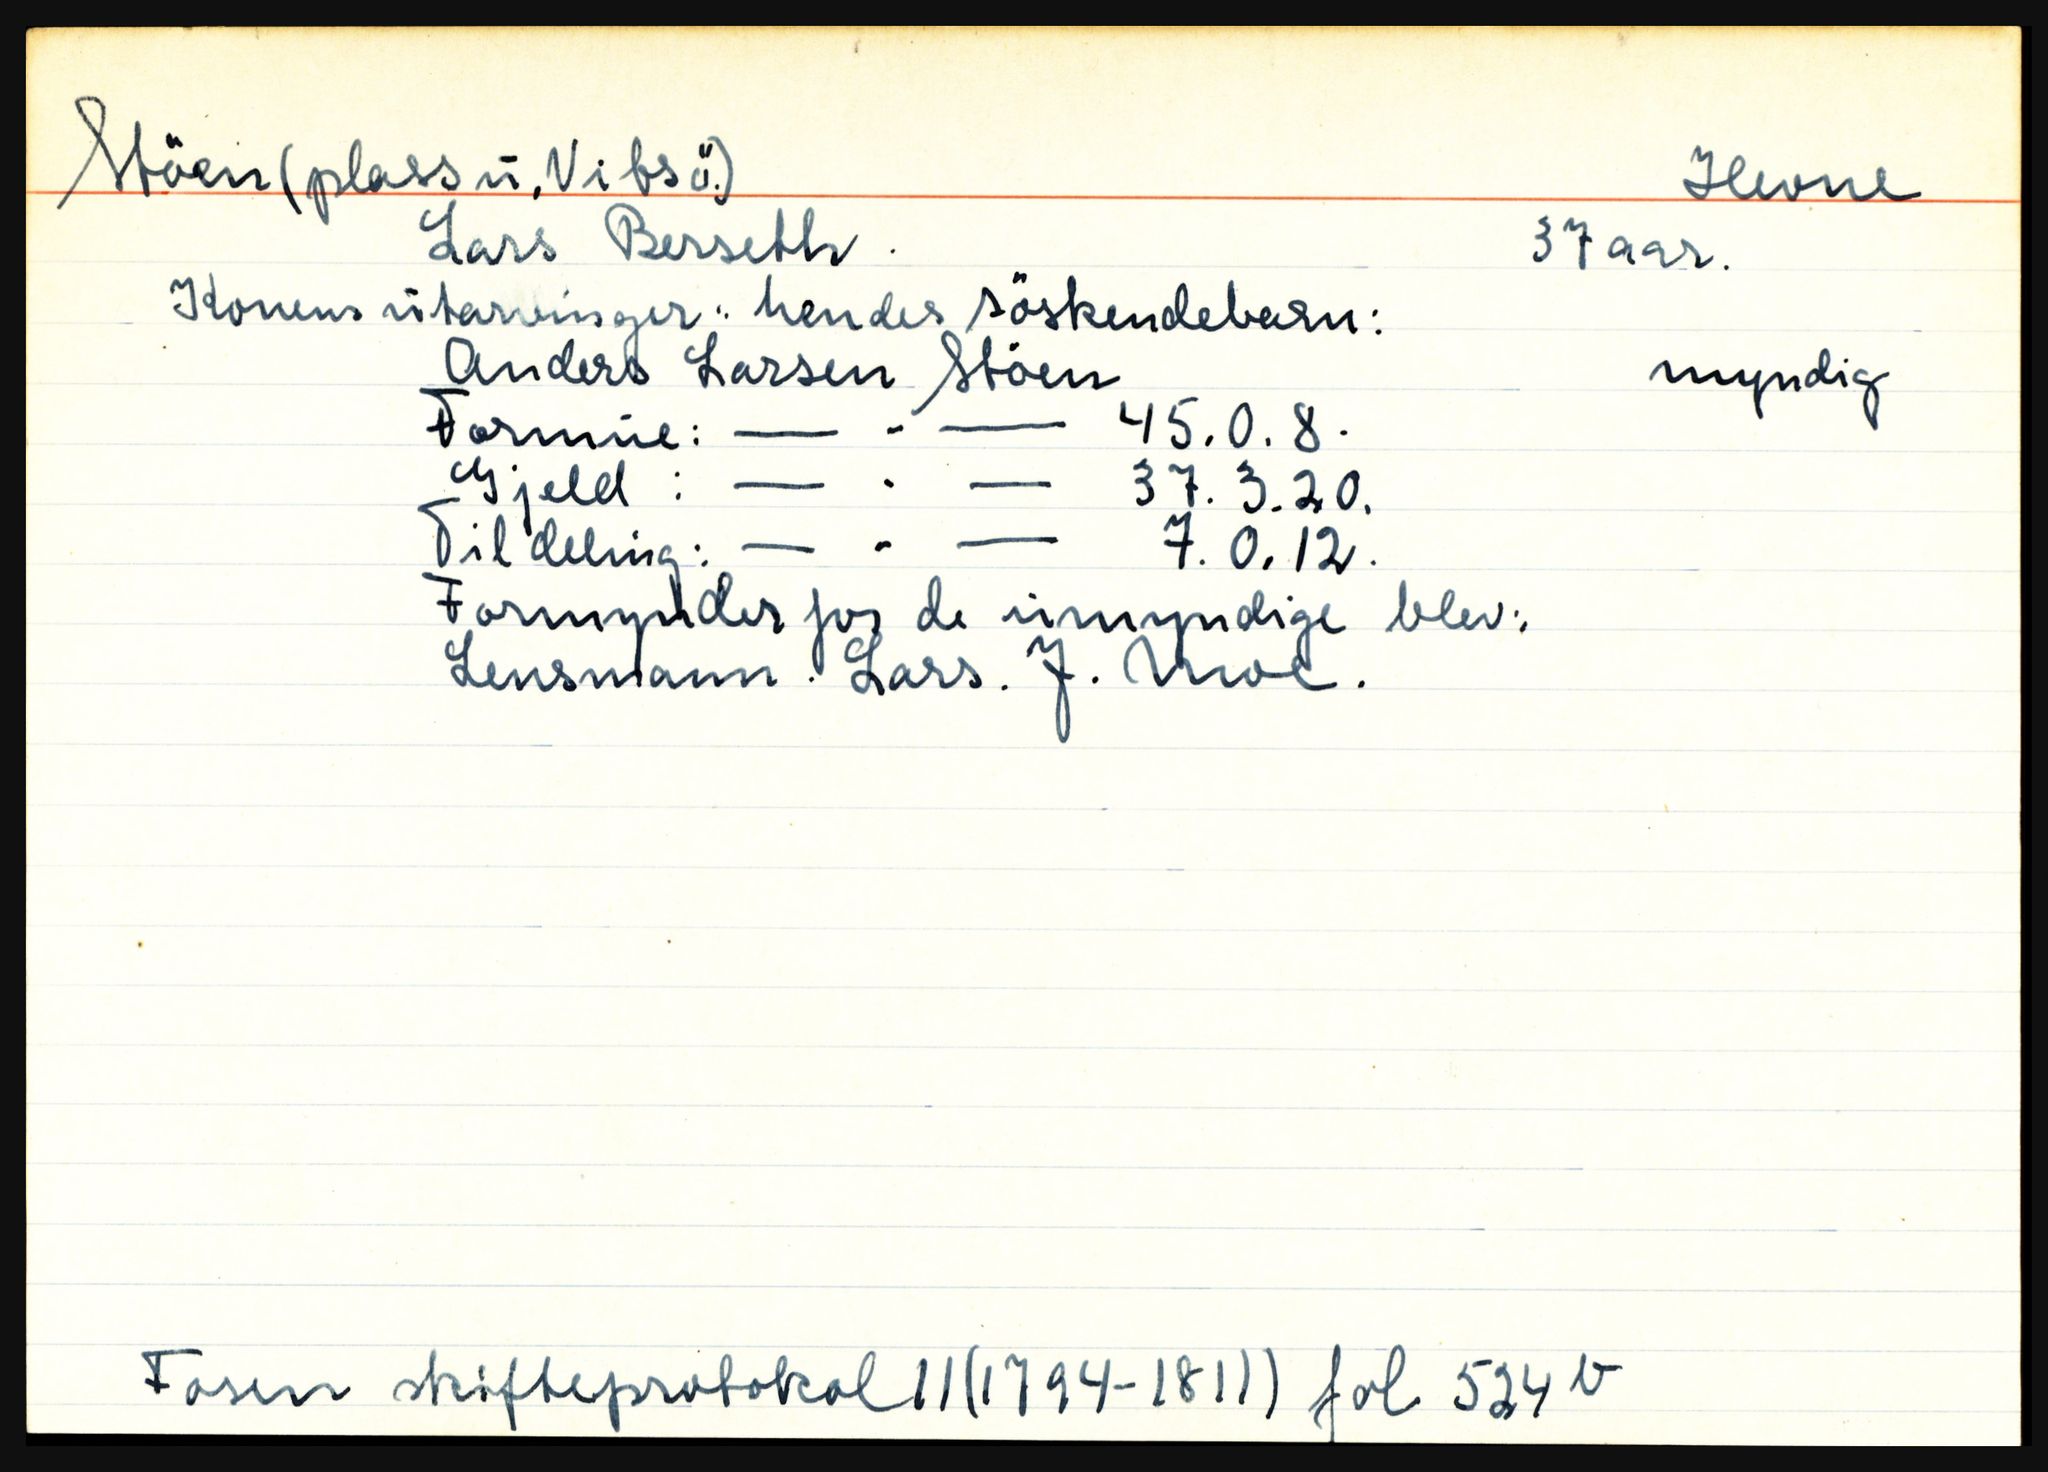 Stöen (plass ū. Vibsö.) Hevne
Lars Berseth. 37 aar.
Konens ūtarvinger: hendes söskendebarn:
Anders Larsen Stöen myndig
Formūe: — - — 45.0.8.
Gjeld : — - — 37.3.20.
Til deling: — - — 7.0.12.
Formynder for de ūmyndige blev:
Lensmann. Lars. J. Moe.
Fosen skifteprotokol 11 (1794-1811) fol 524 b